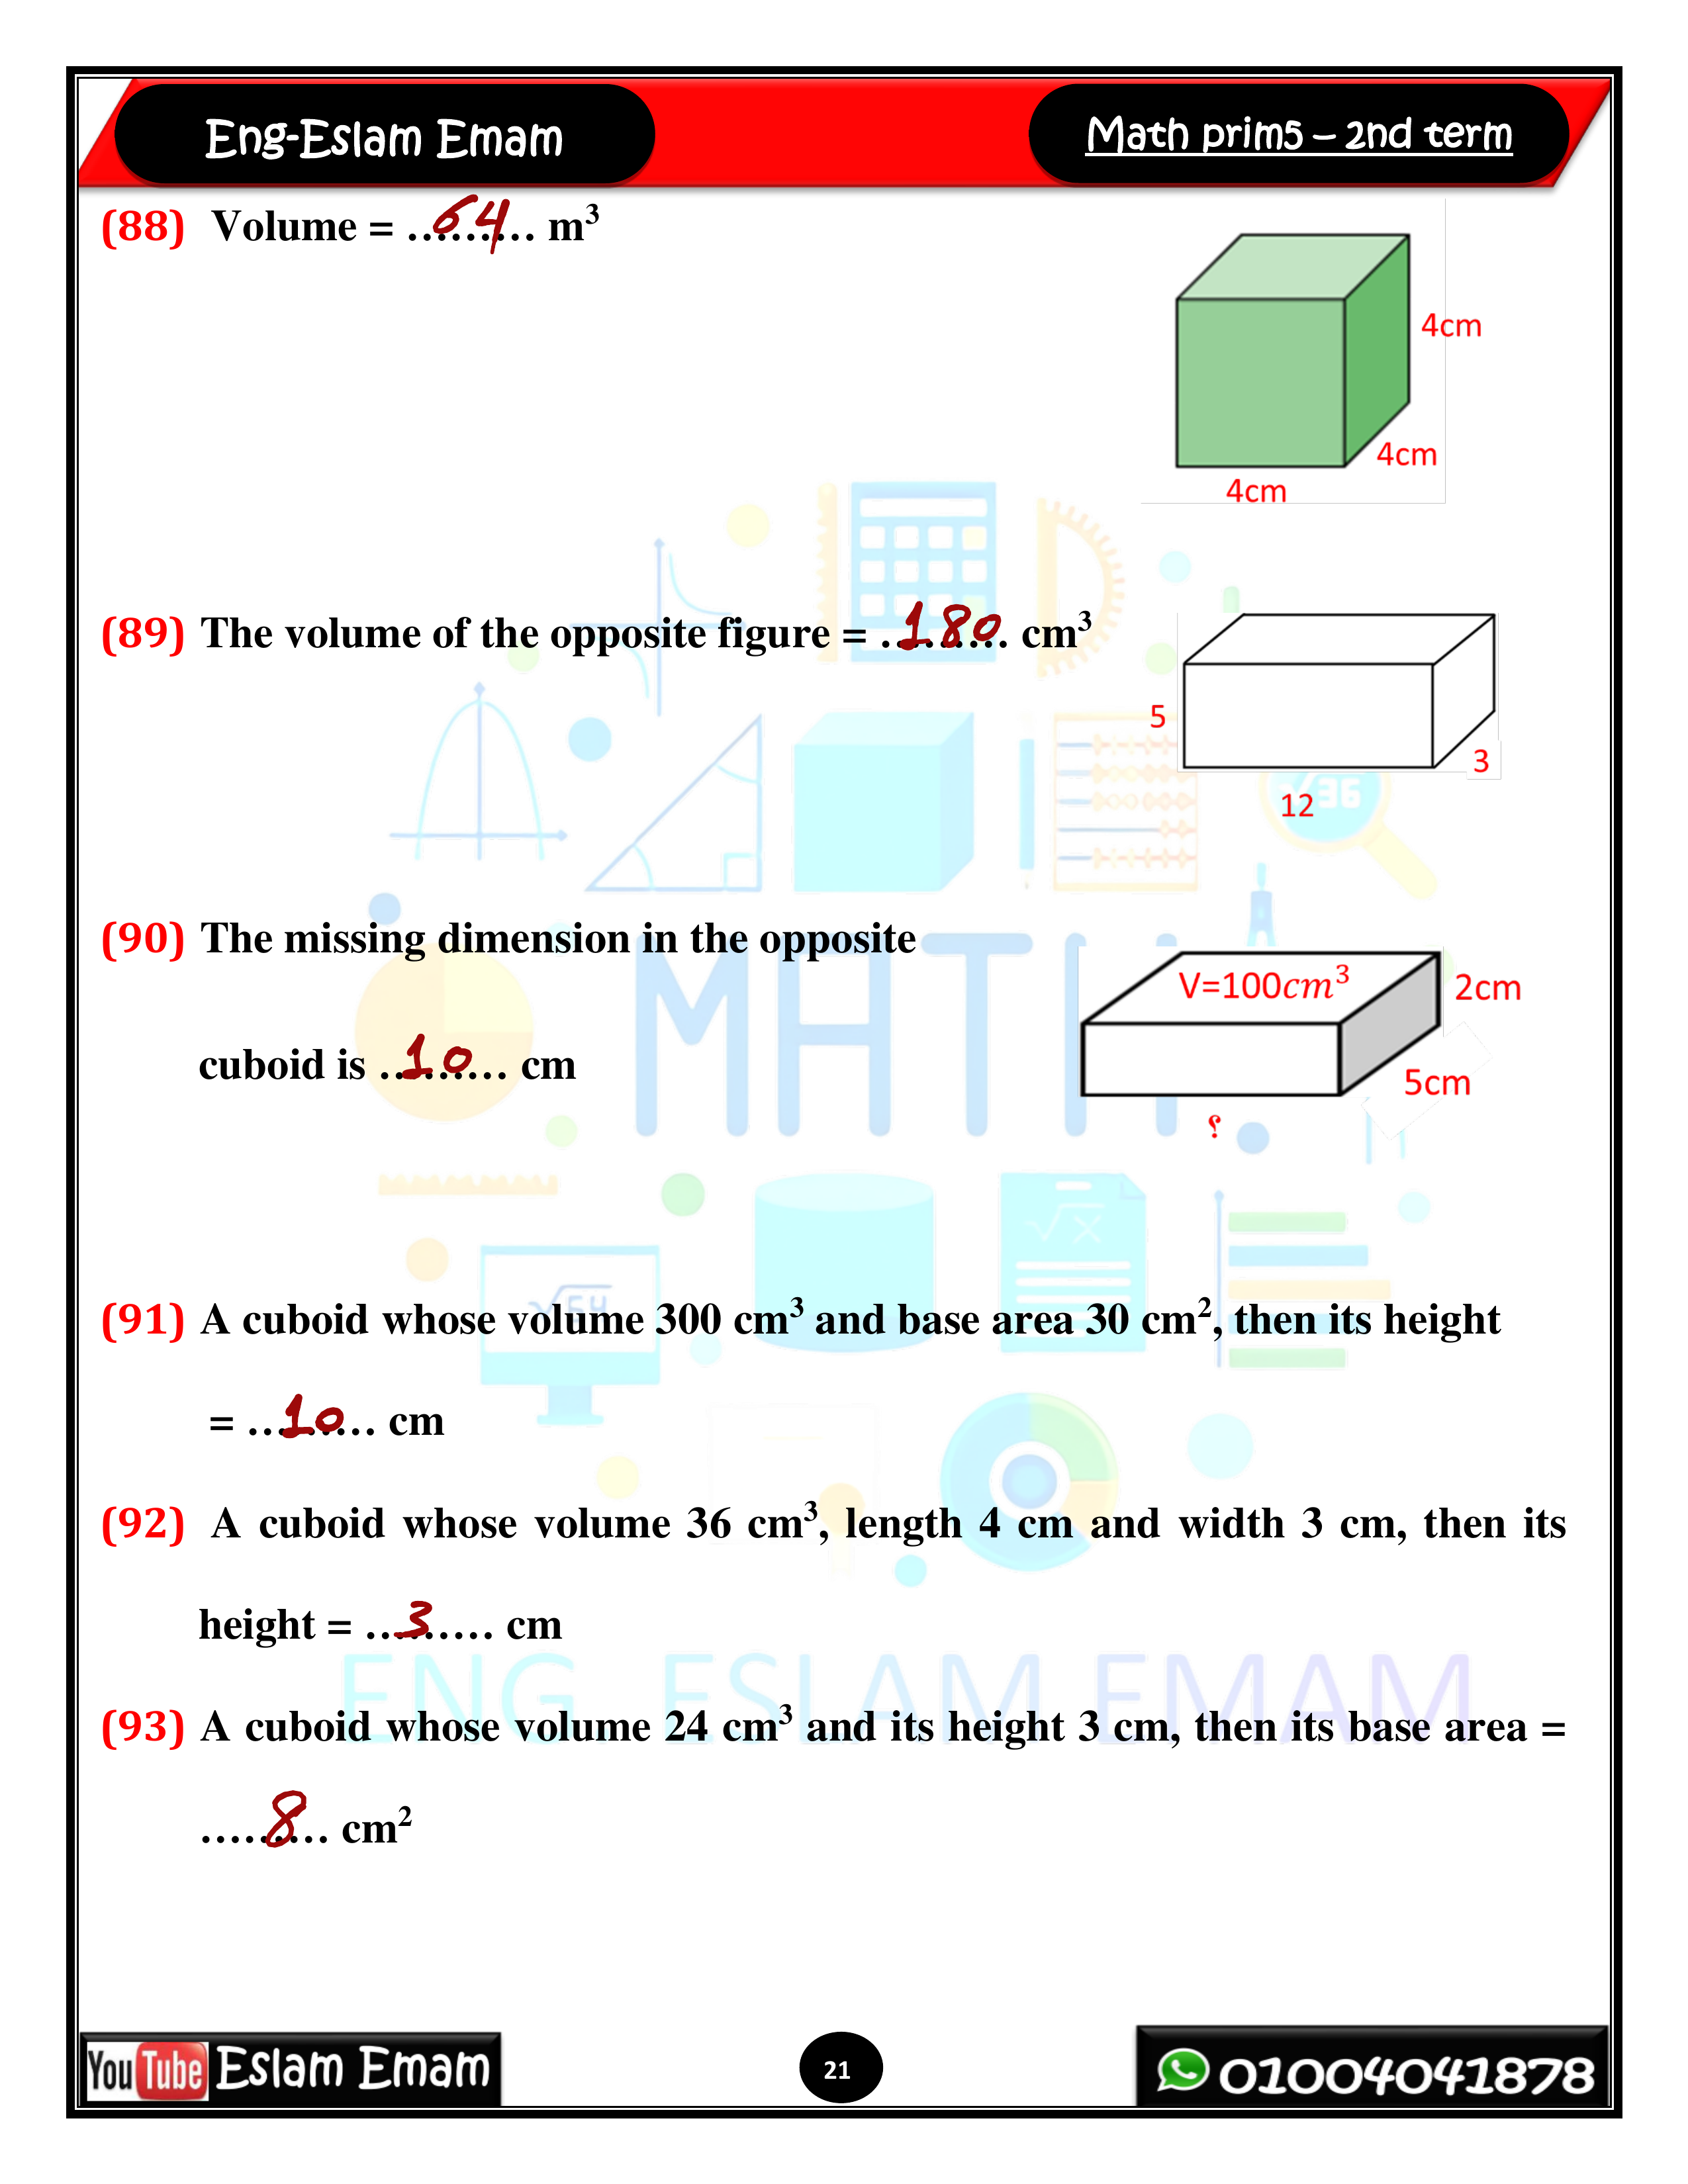 Eng-Eslam Emam
Math prim5 – 2nd term
(88) Volume = ...64... m³
4cm
4cm
4cm
(89) The volume of the opposite figure = ...180... cm³
5
3
12
√36
(90) The missing dimension in the opposite
V=100cm³
2cm
cuboid is ...10... cm
5cm
؟
MATH
√x
√64
(91) A cuboid whose volume 300 cm³ and base area 30 cm², then its height
= ...10... cm
(92) A cuboid whose volume 36 cm³, length 4 cm and width 3 cm, then its
height = ...3... cm
ENG ESLAM EMAM
(93) A cuboid whose volume 24 cm³ and its height 3 cm, then its base area =
...8... cm²
YouTube Eslam Emam
21
01004041878